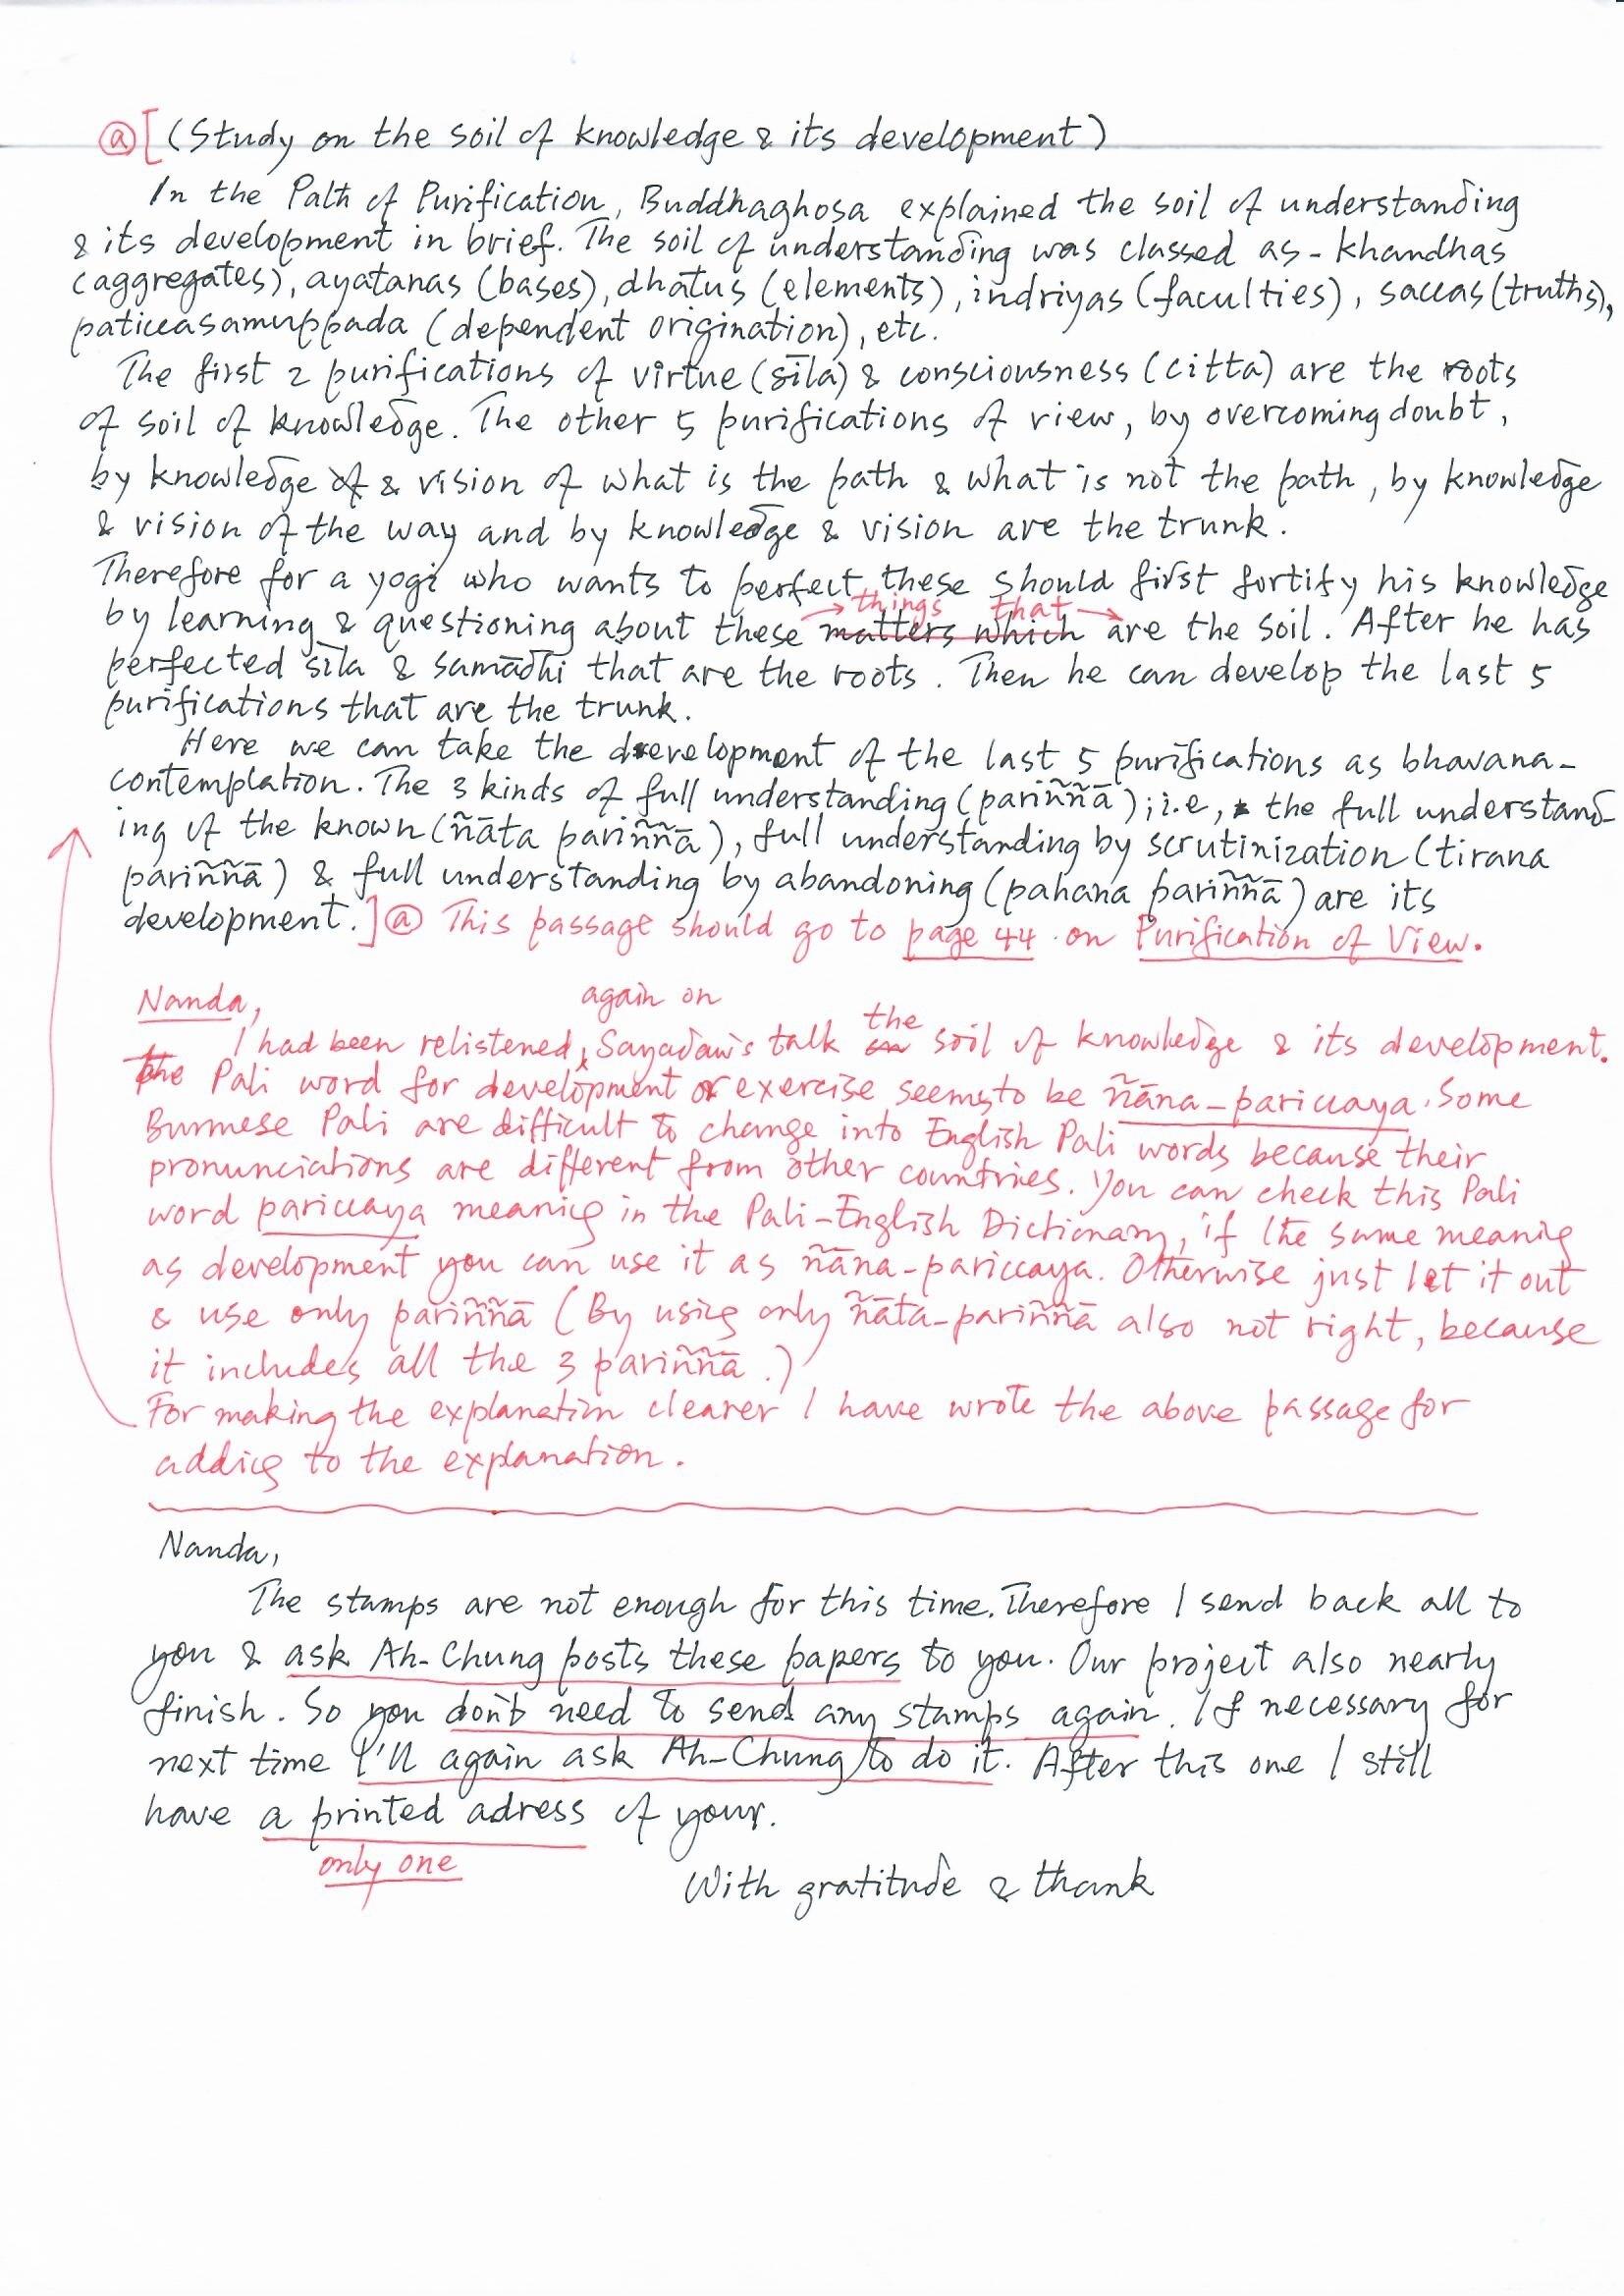 @[(Study on the soil of knowledge & its development)
In the Path of Purification, Buddhaghosa explained the soil of understanding
& its development in brief. The soil of understanding was classed as - khandhas
(aggregates), ayatanas (bases), dhatus (elements), indriyas (faculties), saccas (truths),
paticcasamuppada (dependent origination), etc.
The first 2 purifications of virtue (sīla) & consciousness (citta) are the roots
of soil of knowledge. The other 5 purifications of view, by overcoming doubt,
by knowledge of & vision of what is the path & what is not the path, by knowledge
& vision of the way and by knowledge & vision are the trunk.
Therefore for a yogi who wants to perfect these should first fortify his knowledge
things that
by learning & questioning about these matters which are the soil. After he has
perfected sīla & samādhi that are the roots. Then he can develop the last 5
purifications that are the trunk.
Here we can take the development of the last 5 purifications as bhavana-
contemplation. The 3 kinds of full understanding (pariññā); i.e, the full understand-
ing of the known (ñāta pariññā), full understanding by scrutinization (tirana
pariññā) & full understanding by abandoning (pahana pariññā) are its
development.]@ This passage should go to page 44 on Purification of View.
Nanda,
again on
the
I had been relistened, Sayadaw's talk on soil of knowledge & its development.
The Pali word for development or exercise seems to be ñāna-pariccaya. Some
Burmese Pali are difficult to change into English Pali words because their
pronunciations are different from other countries. You can check this Pali
word pariccaya meanig in the Pali-English Dictionary, if the same meanig
as development you can use it as ñāna-pariccaya. Otherwise just let it out
& use only pariññā (By usig only ñāta-pariññā also not right, because
it includes all the 3 pariññā.)
For making the explanation clearer I have wrote the above passage for
addig to the explanation.
Nanda,
The stamps are not enough for this time. Therefore I send back all to
you & ask Ah-Chung posts these papers to you. Our project also nearly
finish. So you don't need to send any stamps again. If necessary for
next time I'll again ask Ah-Chung to do it. After this one I still
have a printed adress of your.
only one
With gratitude & thank